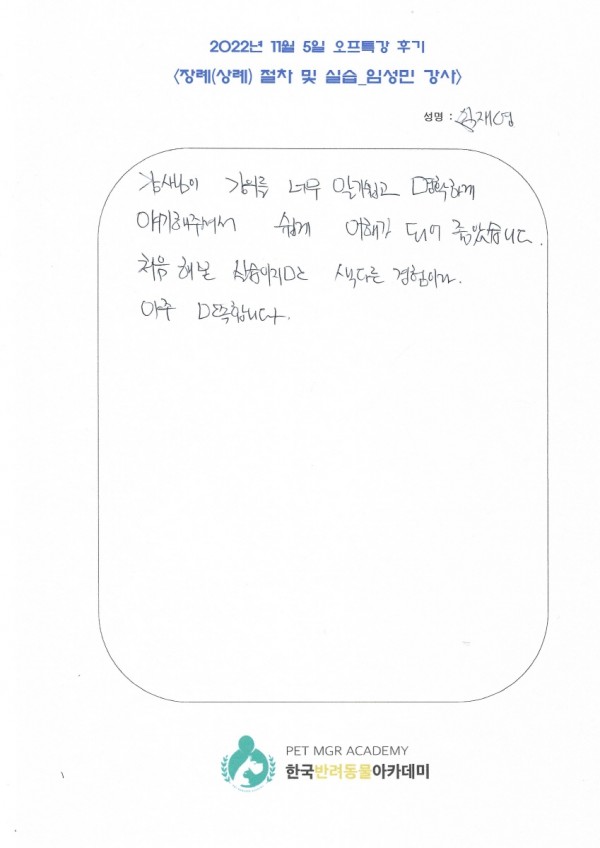 2022년 11월 5일 오프특강 후기
<장례(상례) 절차 및 실습_임성민 강사>
성명 :
강사님이 강의를 너무 알기쉽고 명확하게
얘기해주셔서 쉽게 이해가 되어 좋았습니다.
처음 해본 실습이지만 색다른 경험이라
아주 만족합니다.
PET MGR ACADEMY
한국반려동물아카데미